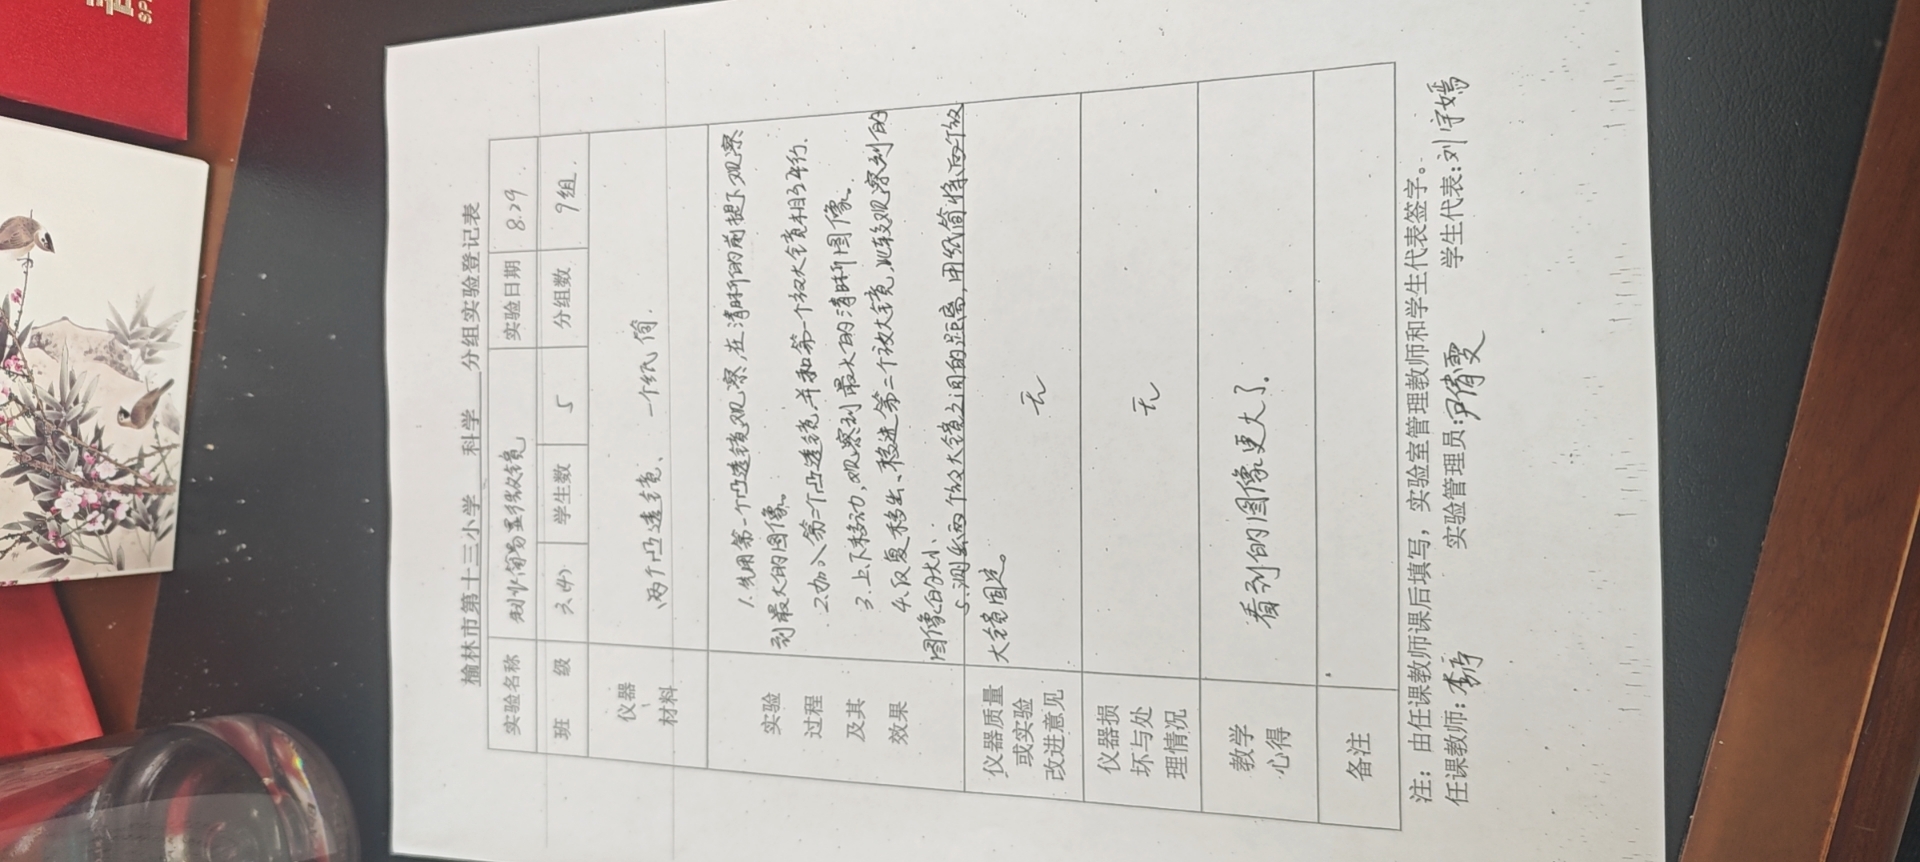 榆林市第十三小学 科学 分组实验登记表
实验名称 制作简易显微镜 实验日期 8.29
班级 学生数 5 分组数 9组.
仪器、材料 两个凸透镜、一个纸筒.
实验过程及其效果
1.先用第一个凸透镜观察,在清晰的前提下观察
到最大的图像.
2.加入第二个凸透镜,并和第一个放大镜相互平行.
3.上下移动,观察到最大的清晰图像.
4.反复移出、移进第二个放大镜,比较观察到的
图像的大小.
5.测出两个放大镜之间的距离,用纸筒将两个放
大镜固定.
仪器质量或实验改进意见 无
仪器损坏与处理情况 无
教学心得 看到的图像更大了.
备注
注:由任课教师课后填写,实验室管理教师和学生代表签字。
任课教师: 实验管理员: 学生代表:刘宇嫣